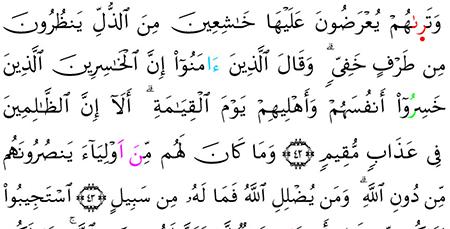 وَتَر۪ىٰهُمْ يُعْرَضُونَ عَلَيْهَا خَٰشِعِينَ مِنَ اَ۬لذُّلِّ يَنظُرُونَ
مِن طَرْفٍ خَفِيّٖۖ وَقَالَ اَ۬لذِينَ ءَامَنُوٓاْ إِنَّ اَ۬لْخَٰسِرِينَ اَ۬لذِينَ
خَسِرُوٓاْ أَنفُسَهُمْ وَأَهْلِيهِمْ يَوْمَ اَ۬لْقِيَٰمَةِۖ أَلَآ إِنَّ اَ۬لظَّٰلِمِينَ
فِے عَذَابٖ مُّقِيمٖ ۝٤٢ وَمَا كَانَ لَهُم مِّنَ اَوْلِيَآءَ يَنصُرُونَهُم
مِّن دُونِ اِ۬للَّهِۖ وَمَنْ يُّضْلِلِ اِ۬للَّهُ فَمَا لَهُۥ مِن سَبِيلٍ ۝٤٣ اِ۪سْتَجِيبُواْ